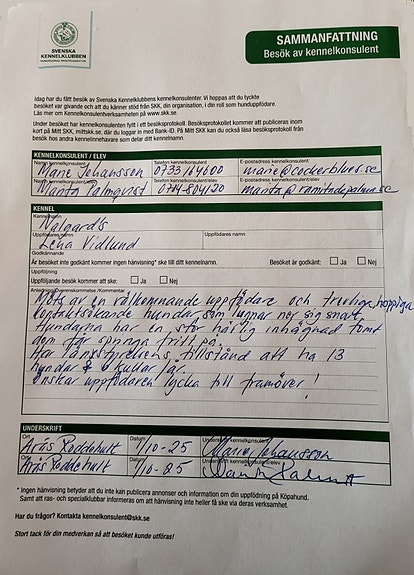 SVENSKA
KENNELKLUBBEN
SAMMANFATTNING
Besök av kennelkonsulent
Idag har du fått besök av Svenska Kennelklubbens kennelkonsulenter. Vi hoppas att du tyckte
besöket var givande och att du känner stöd från SKK, din organisation, i din roll som hunduppfödare.
Läs mer om Kennelkonsulentverksamheten på www.skk.se.
Under besöket har kennelkonsulenten fyllt i ett besöksprotokoll. Besöksprotokollet kommer att publiceras inom
kort på Mitt SKK, mittskk.se, där du loggar in med Bank-ID. På Mitt SKK kan du också läsa besöksprotokoll från
besök hos andra kennelinnehavare som delar ditt kennelnamn.
KENNELKONSULENT / ELEV
Namn kennelkonsulent Telefon kennelkonsulent E-postadress kennelkonsulent
Marie Johansson 0733164600 marie@cockerblues.se
Telefon kennelkonsulent/elev E-postadress kennelkonsulent/elev
Palmqvist
KENNEL
Kennelnamn
Valgard's
Uppfödares namn Uppfödares namn
Lena Vidlund
Godkännande
Är besöket inte godkänt kommer ingen hänvisning* ske till ditt kennelnamn. Besöket är godkänt: Ja Nej
Uppföljning
Uppföljande besök kommer att ske: Ja Nej
Anledning/Överenskommelse /Kommentar
Möts av en välkomnande uppfödare och trevliga, hoppliga
kontaktsökande hundar som lugnar ner sig snart.
Hundarna har en stor härlig inhägnad tomt
dom får springa fritt på.
Har länsstyrelsens tillstånd att ha 13
hundar & 6 kullar/år.
Önskar uppfödaren lycka till framöver!
UNDERSKRIFT
Ort Datum Underskrift kennelkonsulent
Arås /10-25 Marie Johansson
Ort Datum Underskrift kennelkonsulent/elev
Arås /10-25
* Ingen hänvisning betyder att du inte kan publicera annonser och information om din uppfödning på Köpahund.
Samt att ras- och specialklubbar informeras om att hänvisning inte heller få ske via deras verksamhet.
Har du frågor? Kontakta kennelkonsulent@skk.se.
Stort tack för din medverkan så att besöket kunde utföras!